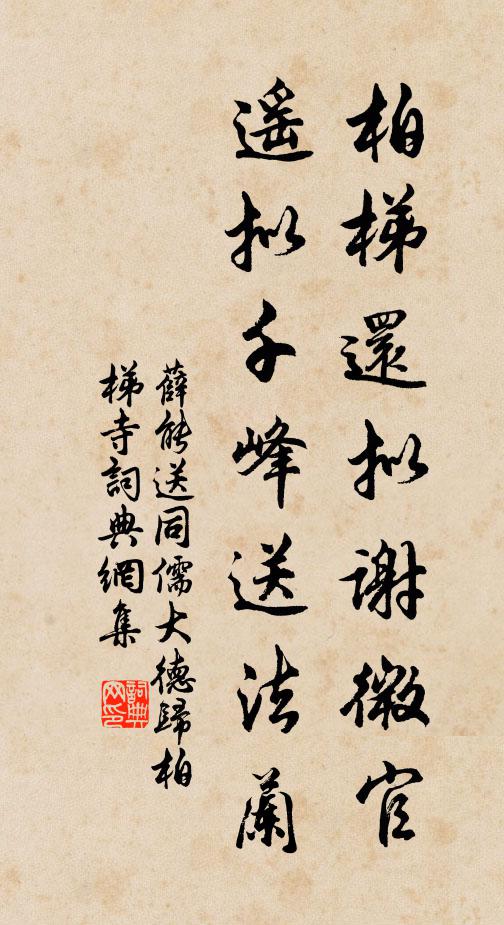 柏梯還拟謝微官
遥拟千峰送法蘭
薛能送同儒大德歸柏
梯寺詞典網集
詞典网印